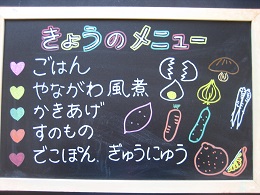 きょうのメニュー
ごはん
やながわ風煮
かきあげ
すのもの
でこぽん ぎゅうにゅう